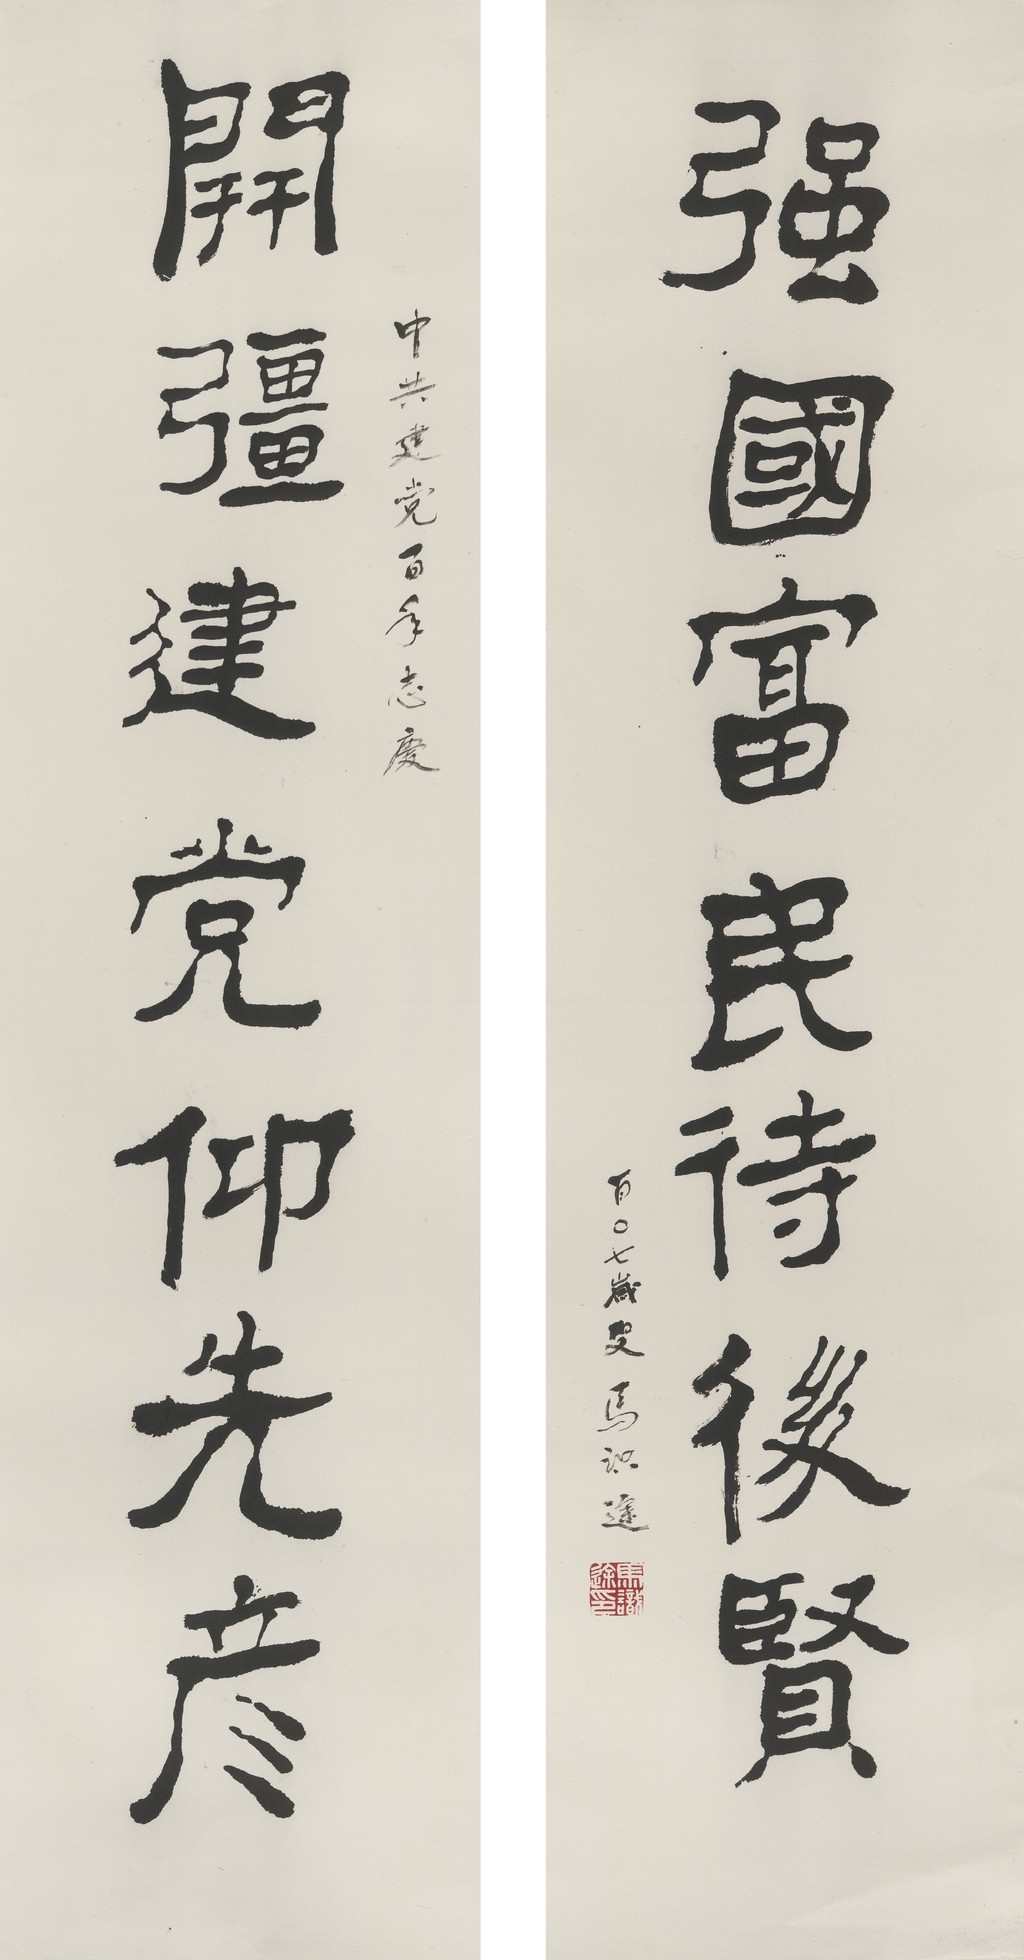 中共建党百年志慶
開彊建党仰先彦
强國富民待後賢
百〇七歲叟 馬识途
馬識途印